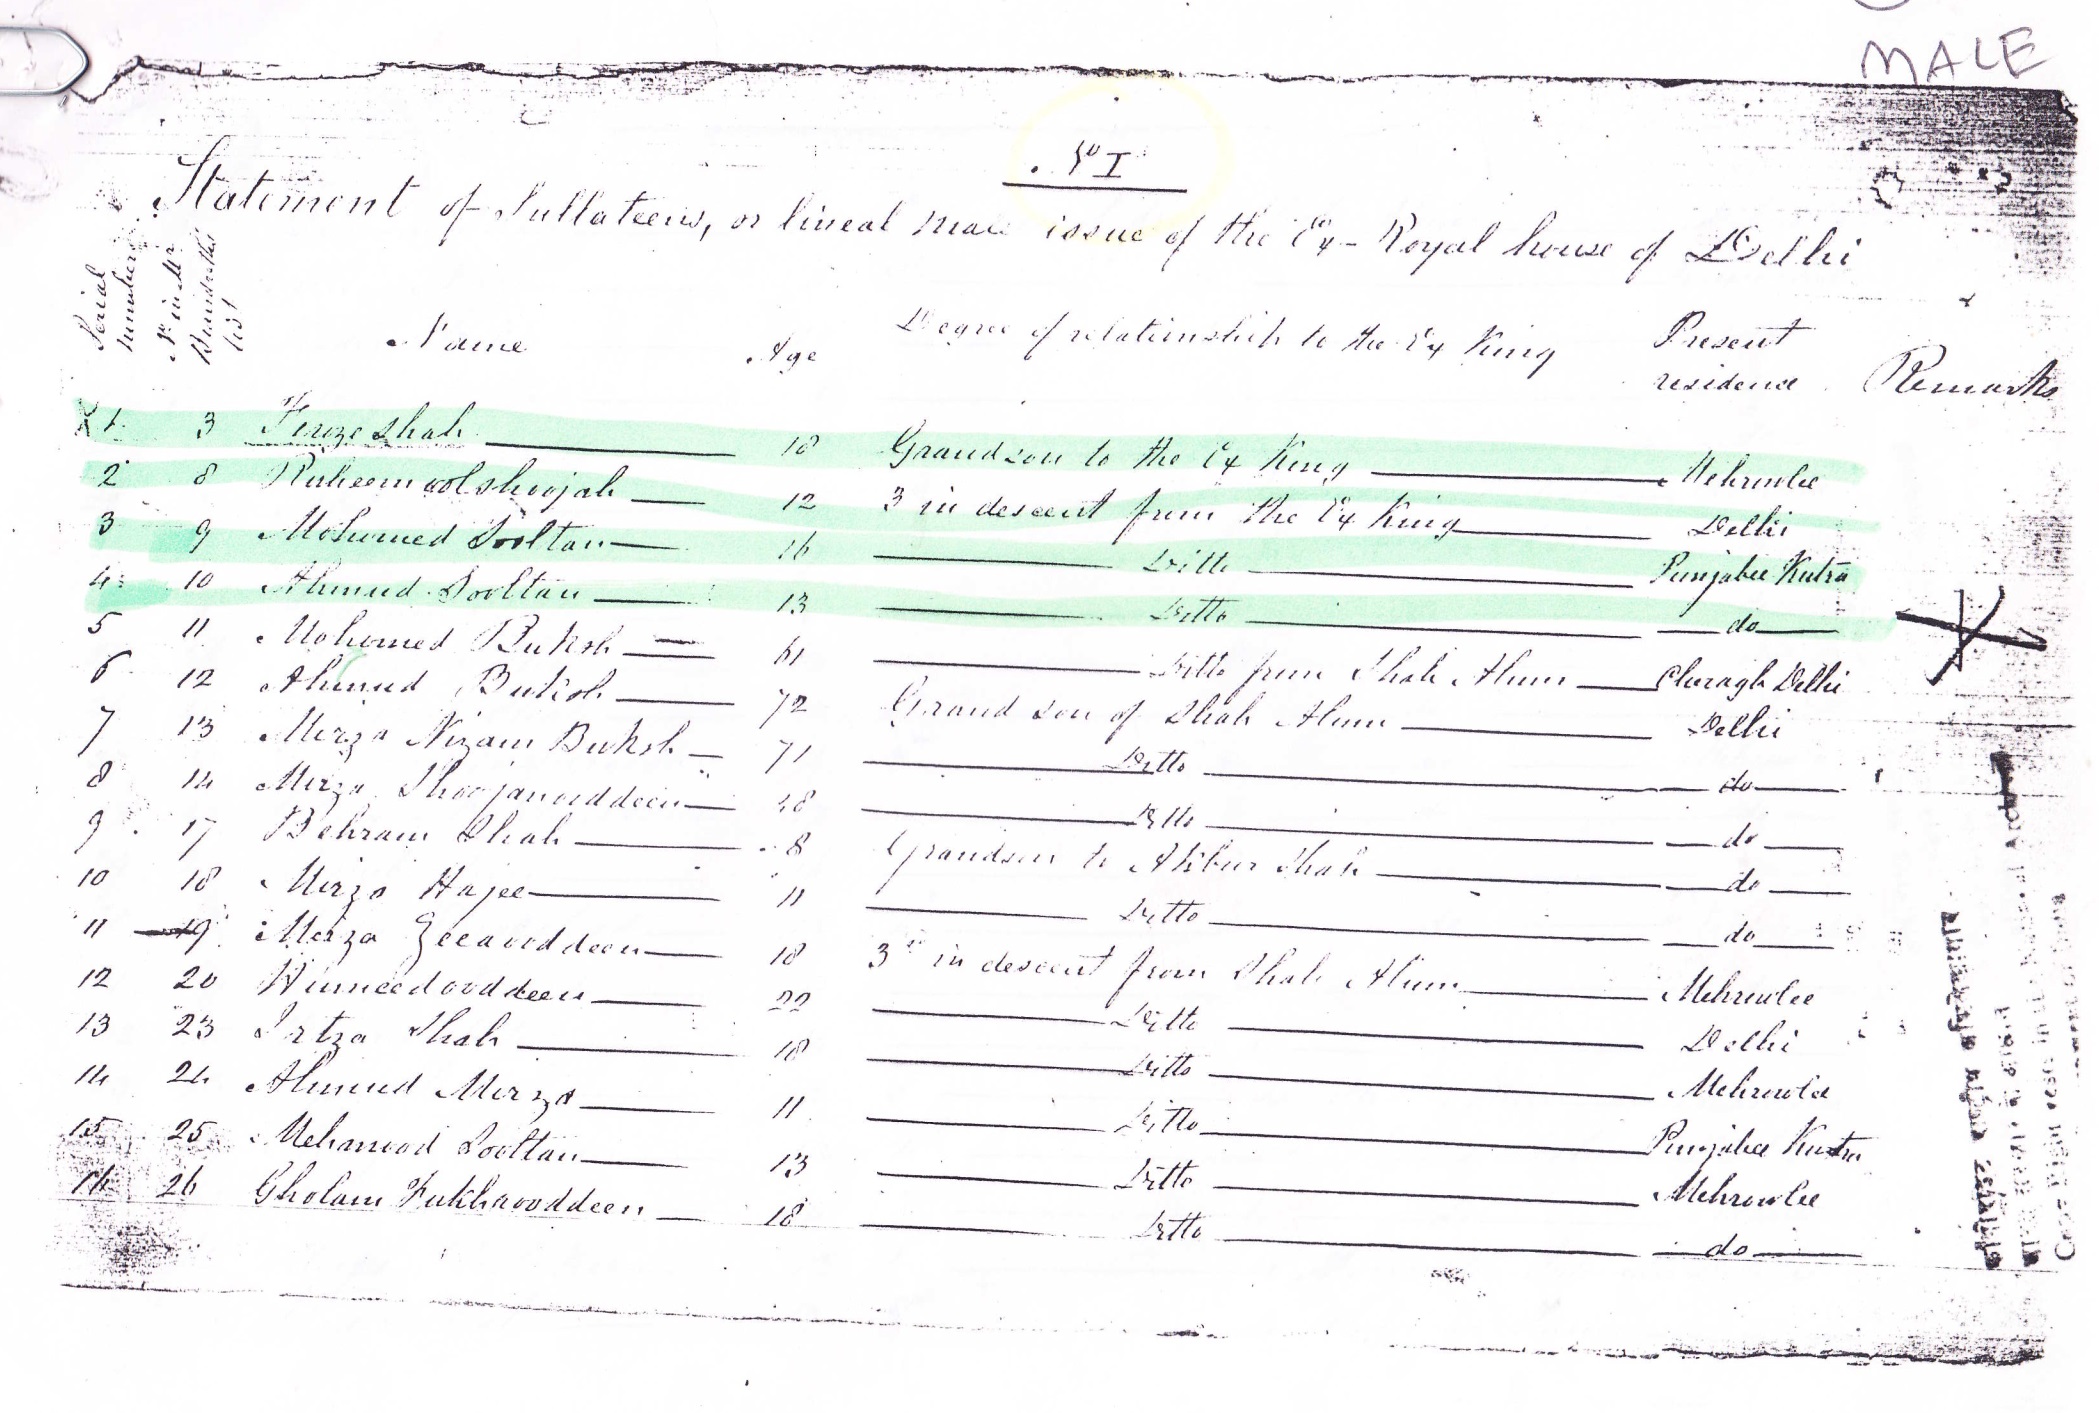 MALE
No I
Statement of Sullateens, or lineal male issue of the Ex-Royal house of Delhi
Serial numbers No in Mr list Name Age Degree of relationship to the Ex King Present residence Remarks
1 3 Feroze Shah 18 Grandson to the Ex King Mehrowlee
2 8 Ruheemoolshoojah 12 3 in descent from the Ex King Delhi
3 9 Mohumed Sooltan 16 Ditto Punjabee Kutra
4 10 Ahmud Sooltan 13 Ditto do
5 11 Mohumed Buksh 61 Ditto from Shah Alum Cheragh Delhi
6 12 Ahmud Buksh 72 Grand son of Shah Alum Delhi
7 13 Mirza Nizam Buksh 71 Ditto do
8 14 Mirza Shoojanooddeen 48 Ditto do
9 17 Behram Shah 8 Grandson to Akbur Shah do
10 18 Mirza Hajee 11 Ditto do
11 19 Mirza Zeeaooddeen 18 3rd in descent from Shah Alum Mehrowlee
12 20 Humeedooddeen 22 Ditto Delhi
13 23 Irtza Shah 18 Ditto Mehrowlee
14 24 Ahmud Mirza 11 Ditto Punjabee Kutra
15 25 Mehmood Sooltan 13 Ditto Mehrowlee
16 26 Gholam Fukhrooddeen 18 Ditto do